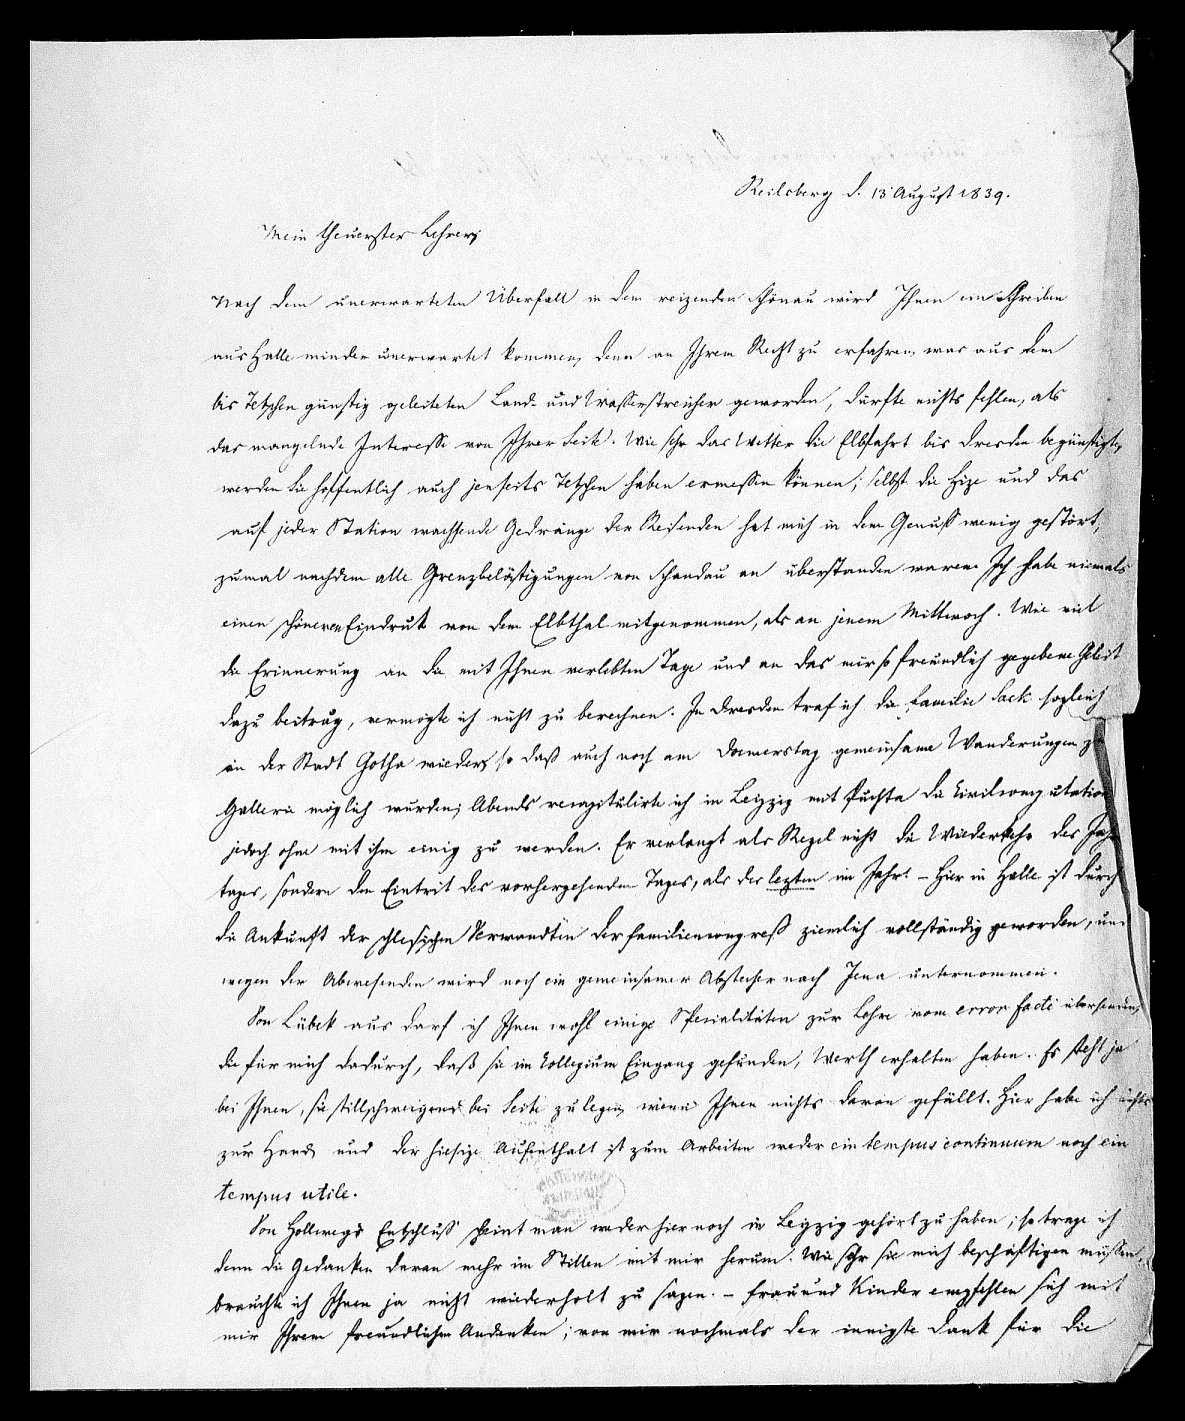 Reilsberg d. 13 August 1839.
Mein theuerster Lehrer,
Nach dem unerwarteten Überfall in dem reizenden Schönau wird Ihnen ein Schreiben
aus Halle minder unerwartet kommen, denn an Ihrem Recht zu erfahren, was aus dem
bis Tetschen günstig geleiteten Land- und Wasserstreicher geworden, dürfte nichts fehlen, als
das mangelnde Interesse von Ihrer Seite. Wie sehr das Wetter die Elbfahrt bis Dresden begünstigte,
werden Sie hoffentlich auch jenseits Tetschen haben ermessen können; selbst die Hize und das
auf jeder Station wachsende Gedränge der Reisenden hat mich in dem Genuß wenig gestört,
zumal nachdem alle Grenzbelästigungen von Schandau an überstanden waren. Ich habe niemals
einen schöneren Eindruk von dem Elbthal mitgenommen, als an jenem Mittwoch. Wie viel
die Erinnerung an die mit Ihnen verlebten Tage und an das mir so freundlich gegebene Geleit
dazu beitrug, vermögte ich nicht zu berechnen. In Dresden traf ich die Familie Sack sogleich
in der Stadt Gotha wieder, so daß auch noch am Donnerstag gemeinsame Wanderungen zur
Gallerie möglich wurden; Abends recapitulirte ich in Leipzig mit Puchta die Civilcomputation
jedoch ohne mit ihm einig zu werden. Er verlangt als Regel nicht die Wiederkehr des Jahr
tages, sondern den Eintrit des vorhergehenden Tages, als des lezten im Jahr. – Hier in Halle ist durch
die Ankunft der schlesischen Verwandten der Familiencongreß ziemlich vollständig geworden, und
wegen der Abwesenden wird noch ein gemeinsamer Abstecher nach Jena unternommen.
Von Lübek aus darf ich Ihnen wohl einige Spezialitäten zur Lehre vom error facti übersenden,
die für mich dadurch, daß sie im Collegium Eingang gefunden, Werth erhalten haben. Es steht ja
bei Ihnen, sie stillschweigend bei Seite zu legen, wenn Ihnen nichts davon gefällt. Hier habe ich nichts
zur Hand, und der hiesige Aufenthalt ist zum Arbeiten weder ein tempus continuum noch ein
tempus utile.
Von Hollwegs Entschluß scheint man weder hier noch in Leipzig gehört zu haben; so trage ich
denn die Gedanken daran mehr im Stillen mit mir herum. Wie sehr sie mich beschäftigen müssen,
brauchte ich Ihnen ja nicht wiederholt zu sagen. – Frau und Kinder empfehlen sich mit
mir Ihrem freundlichen Andenken; von mir nochmals der innigste Dank für die